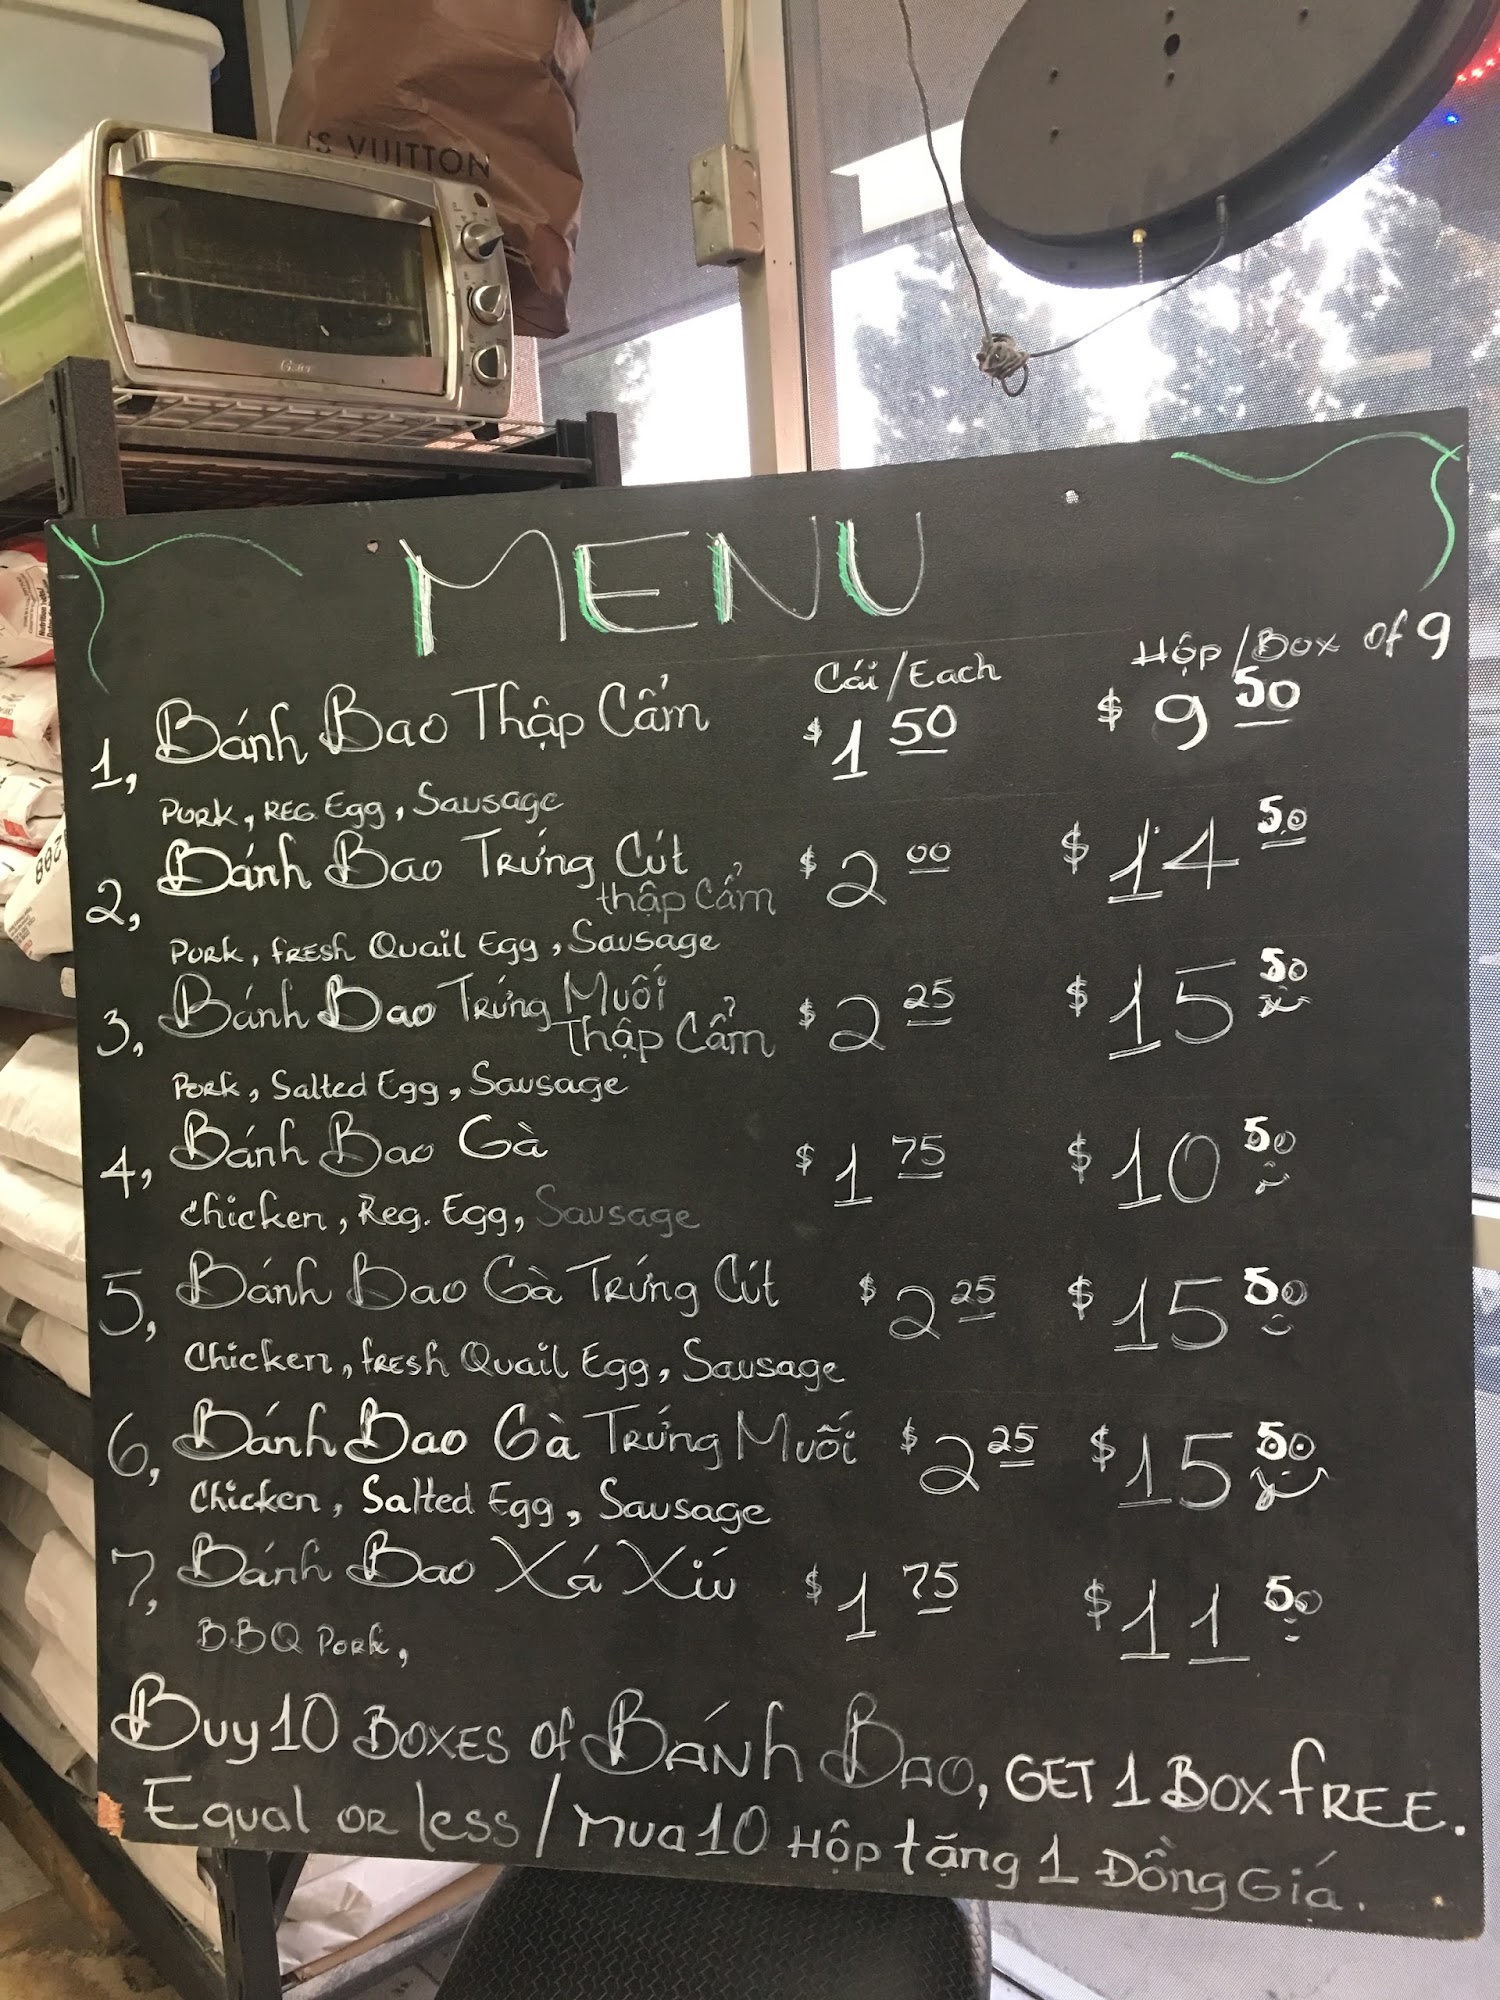 IS VUITTON
Oster
MENU
Cái/Each Hộp/Box of 9
1, Bánh Bao Thập Cẩm $1 50 $9 50
Pork, Reg. Egg, Sausage
2, Bánh Bao Trứng Cút $2 00 $14 50
thập Cẩm
Pork, fresh Quail Egg, Sausage
3, Bánh Bao Trứng Muối $2 25 $15 50
Thập Cẩm
Pork, Salted Egg, Sausage
4, Bánh Bao Gà $1 75 $10 50
Chicken, Reg. Egg, Sausage
5, Bánh Bao Gà Trứng Cút $2 25 $15 50
Chicken, fresh Quail Egg, Sausage
6, Bánh Bao Gà Trứng Muối $2 25 $15 50
Chicken, Salted Egg, Sausage
7, Bánh Bao Xá Xíu $1 75 $11 50
BBQ Pork,
Buy 10 Boxes of Bánh Bao, GET 1 Box fREE.
Equal or less / Mua 10 Hộp tặng 1 Đồng Giá.